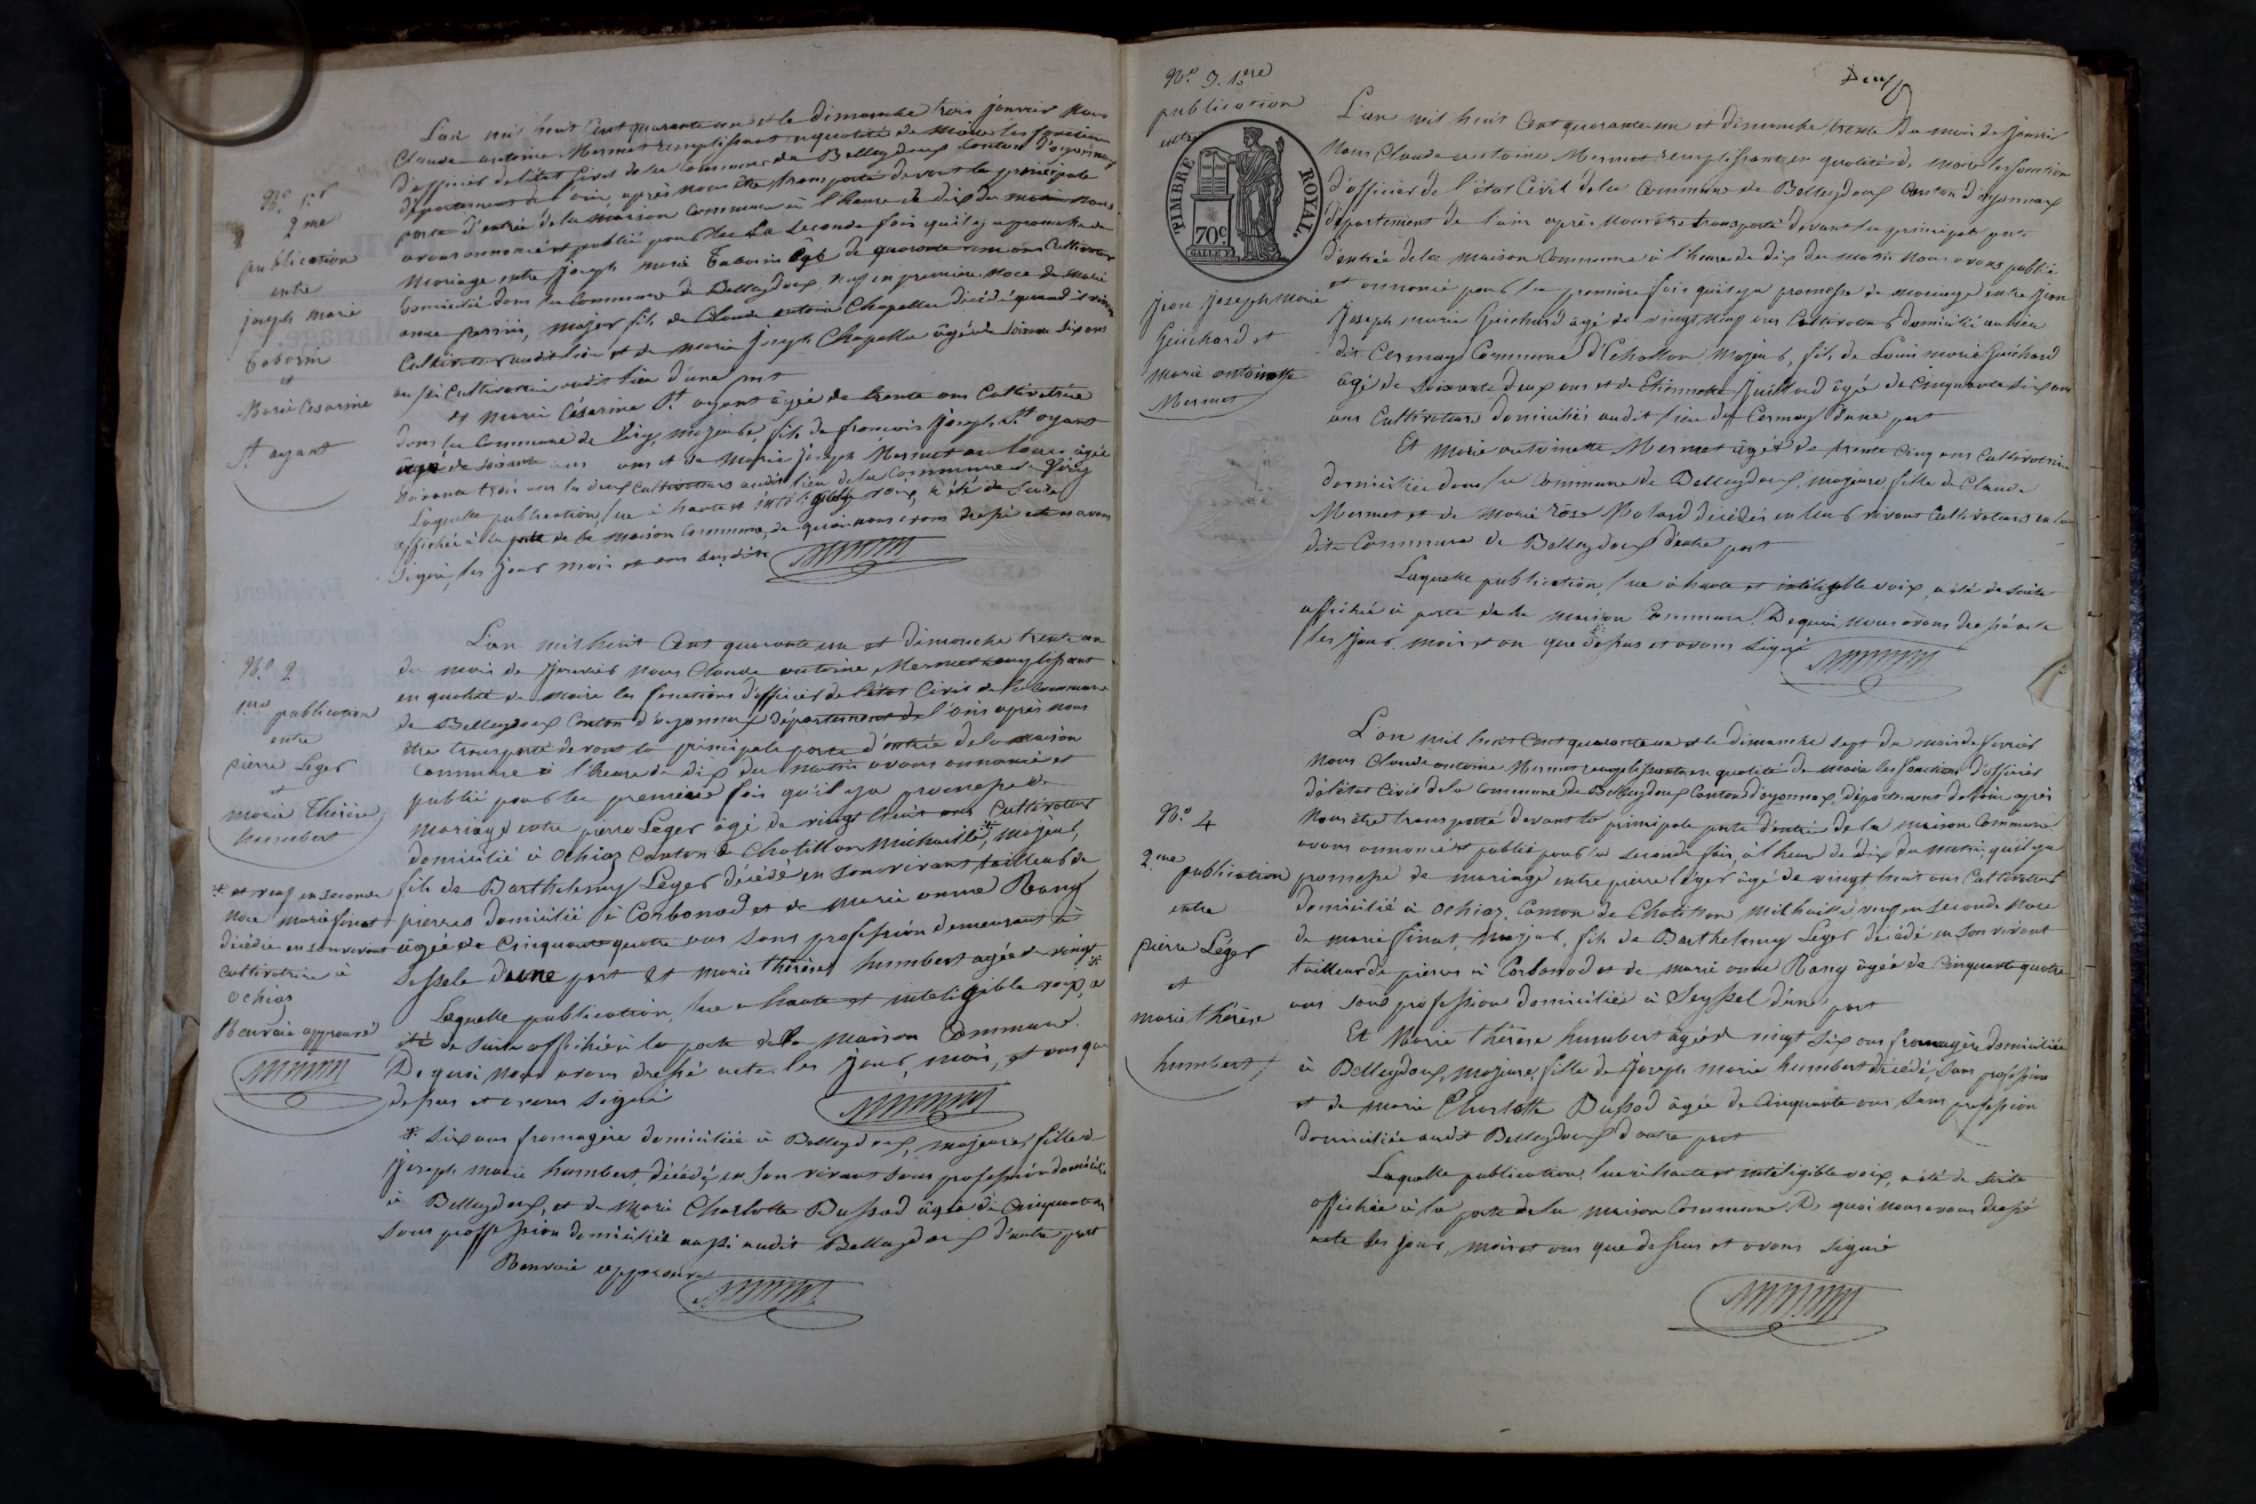 N.° 1.er
2.me
publication
entre
joseph marie
Tabarin
et
Marie Césarine
S.t oyant
L'an mil huit Cent quarante un et le dimanche trois janvier Nous
Claude antoine Mermet remplissant en qualité de Maire les fonctions
d'officier de l'état Civil de la Commune de Belleydoux Canton d'oyonnax
département de l'ain, après nous être transporté devant la principale
porte d'entrée de la maison Commune à l'heure de dix du matin nous
avons annoncé et publié pour la seconde fois qu'il y a promesse de
Mariage entre joseph marie Tabarin âgé de quarante un ans Cultivateur
domicilié dans la Commune de Belleydoux, veuf en première noce de Marie
anne Perrin, majeur fils de Claude antoine Chapelle décédé quand il vivait
Cultivateur audit lieu et de Marie joseph Chapelle âgée de soixante dix ans
aussi Cultivatrice audit lieu d'une part
et Marie Césarine S.t oyant âgée de trente ans Cultivatrice
dans la Commune de Viry, majeure, fille de françois joseph S.t oyant
âgé de soixante ans et de Marie joseph Mermet âgée
soixante trois ans les deux Cultivateurs audit lieu de la Commune de Viry
Laquelle publication, lue à haute et intelligible voix, a été de suite
affichée à la porte de la maison Commune, de quoi nous avons dressé acte et avons
signé, les jour mois et ans susdits
N.° 2
1.re publication
entre
pierre Leger
et
marie Thérèse
humbert
L'an mil huit Cent quarante un et dimanche trente un
du mois de Janvier nous Claude antoine Mermet remplissant
en qualité de maire les fonctions d'officier de l'état Civil de la Commune
de Belleydoux Canton d'oyonnax département de l'ain après nous
être transporté devant la principale porte d'entrée de la maison
Commune à l'heure de dix du matin avons annoncé et
publié pour la première fois qu'il y a promesse de
mariage entre pierre Leger âgé de vingt huit ans Cultivateur
domicilié à ochiaz Canton de Chatillon Michaille,* majeur,
fils de Barthelemy Leger décédé en son vivant tailleur de
pierres domicilié à Corbonod et de marie anne Rang
âgée de Cinquante quatre ans sans profession demeurant à
Seyssele d'une part Et marie thérèse humbert agée de vingt *
Laquelle publication, lue a haute et inteligible voix, a
été de suite affichée à la porte de la maison Commune.
De quoi nous avons dressé acte les jour, mois, et ans que
dessus et avons signé
* et veuf en seconde
noce marie finat
décédée en son vivant
Cultivatrice à
ochiaz
Renvoie approuvé
* six ans fromagère domiciliée à Belleydoux, majeure, fille de
joseph marie humbert, décédé, en son vivant sans profession domicilié
à Belleydoux, et de Marie Charlotte Bussod âgée de Cinquante ans
sans profession domiciliée aussi audit Belleydoux d'autre part
Renvoie approuvé
Deux
N.° 3. 1.ere
publication
entre
TIMBRE ROYAL.
70c
jean joseph Marie
Guichard et
Marie antoinette
Mermet
L'an mil huit Cent quarante un et dimanche, trente du mois de janvier
Nous Claude antoine Mermet remplissant en qualité de maire les fonctions
d'officier de l'état Civil de la Commune de Belleydoux Canton d'oyonnax
département de l'ain après nous être transporté devant la principale porte
d'entrée de la maison Commune à l'heure de dix du matin nous avons publié
et annoncé pour la première fois qu'il y a promesse de mariage entre jean
joseph marie Guichard âgé de vingt neuf ans Cultivateur domicilié au lieu
dit Cermay Commune d'Echallon majeur, fils de Louis marie Guichard
âgé de soixante deux ans et de Etiennette Juillard âgée de Cinquante six ans
ans Cultivateurs domiciliés audit lieu de Cermay d'une part
Et Marie antoinette Mermet âgée de trente Cinq ans Cultivatrice
domiciliée dans la Commune de Belleydoux, majeure fille de Claude
Mermet et de Marie rose Molard décédés en leur vivant Cultivateurs en la
dite Commune de Belleydoux d'autre part
Laquelle publication, lue à haute et inteligible voix, a été de suite
affichée à porte de la maison Commune. De quoi nous avons dressé acte
les jour, mois et an que dessus et avons signé
N.° 4
2.me
publication
entre
pierre Léger
et
marie thérèse
humbert
L'an mil huit Cent quarante un et le dimanche sept du mois de fevrier
Nous Claude antoine Mermet remplissant en qualité de maire les fonctions d'officier
de l'état Civil de la Commune de Belleydoux Canton d'oyonnax, département de l'ain après
nous être transporté devant la principale porte d'entrée de la maison Commune
avons annoncé et publié pour la seconde fois, à l'heure de dix du matin, qu'il y a
promesse de mariage entre pierre léger âgé de vingt huit ans Cultivateur
domicilié à ochiaz, Canton de Chatillon Milhaille, veuf en seconde noce
de marie finat, majeur, fils de Barthelemy Léger décédé en son vivant
tailleur de pierres à Corbonod et de marie anne Rang âgée de Cinquante quatre
ans sans profession domiciliée à Seyssel d'une part
Et Marie thérèse humbert âgée de vingt six ans fromagère domiciliée
à Belleydoux, majeure, fille de joseph marie humbert décédé, sans profession
et de marie Charlotte Bussod âgée de Cinquante ans sans profession
domiciliée audit Belleydoux d'autre part
Laquelle publication, lue à haute et inteligible voix, a été de suite
affichée à la porte de la maison Commune. De quoi nous avons dressé
acte les jour, mois et ans que dessus et avons signé